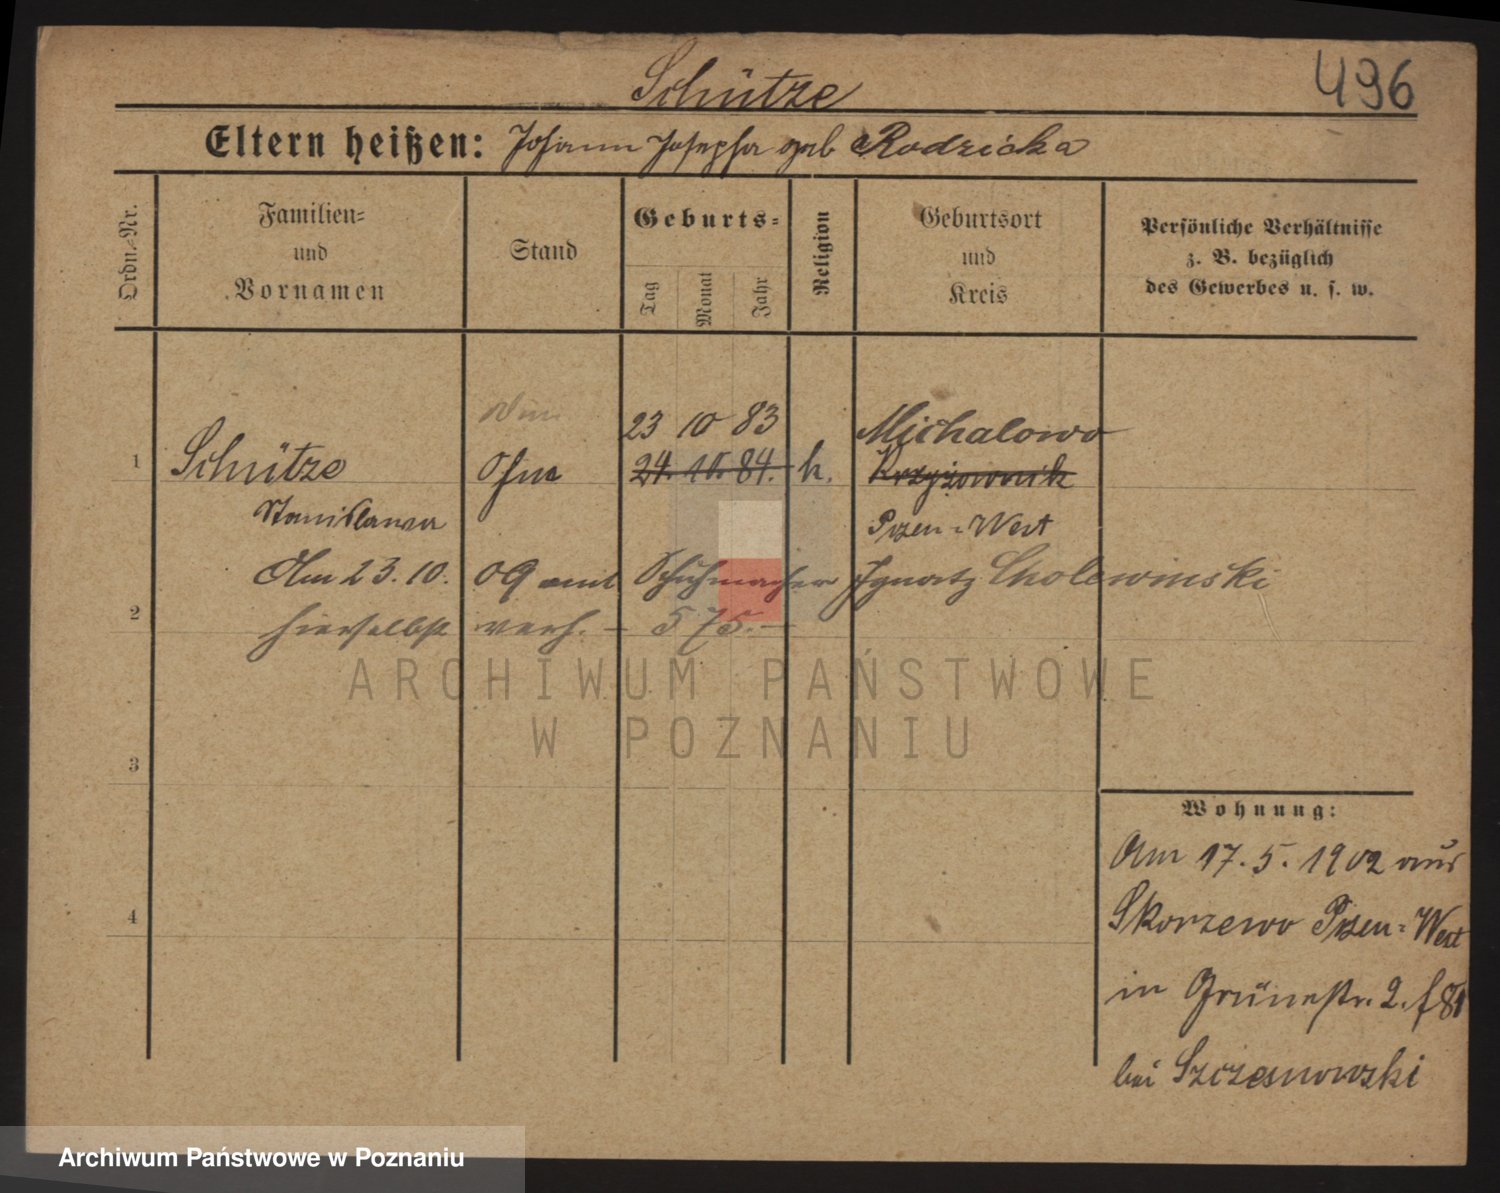 496
Schütze
Eltern heißen: Johann Josepha geb Rodzicka
Ordn.-Nr.
Familien-
und
Vornamen
Stand
Geburts-
Tag
Monat
Jahr
Religion
Geburtsort
und
Kreis
Persönliche Verhältnisse
z. B. bezüglich
des Gewerbes u. s. w.
23 10 83 Michalowo
1 Schütze ohne 24. 10. 84. k. Krzyżownik
Stanislawa Posen-West
Am 23.10. 09 mit Schuhmacher Ignatz Cholewinski
2
hierselbst verh. – 575. –
ARCHIWUM PAŃSTWOWE
W POZNANIU
3
4
Wohnung:
Am 17. 5. 1902 aus
Skorzewo Posen-West
in Grünestr. 2. f 81
bei Szczesnowski
Archiwum Państwowe w Poznaniu